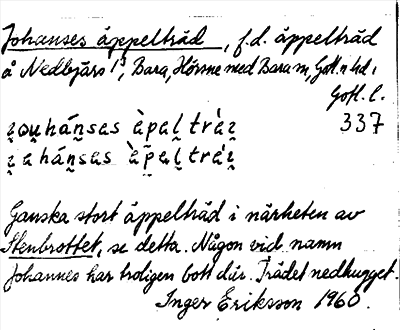 Johanses äppelträd, f.d. äppelträd
å Nedbjärs 1², Bara, Hörsne med Bara sn, Gotl. n hd,
Gotl. l.
337
ʒou̯hánsas àpal trạ̀ʒ
ʒahánsas àpal trạ̀ʒ
Ganska stort äppelträd i närheten av
Stenbrottet, se detta. Någon vid namn
Johannes har troligen bott där. Trädet nedhugget.
Inger Eriksson 1960.